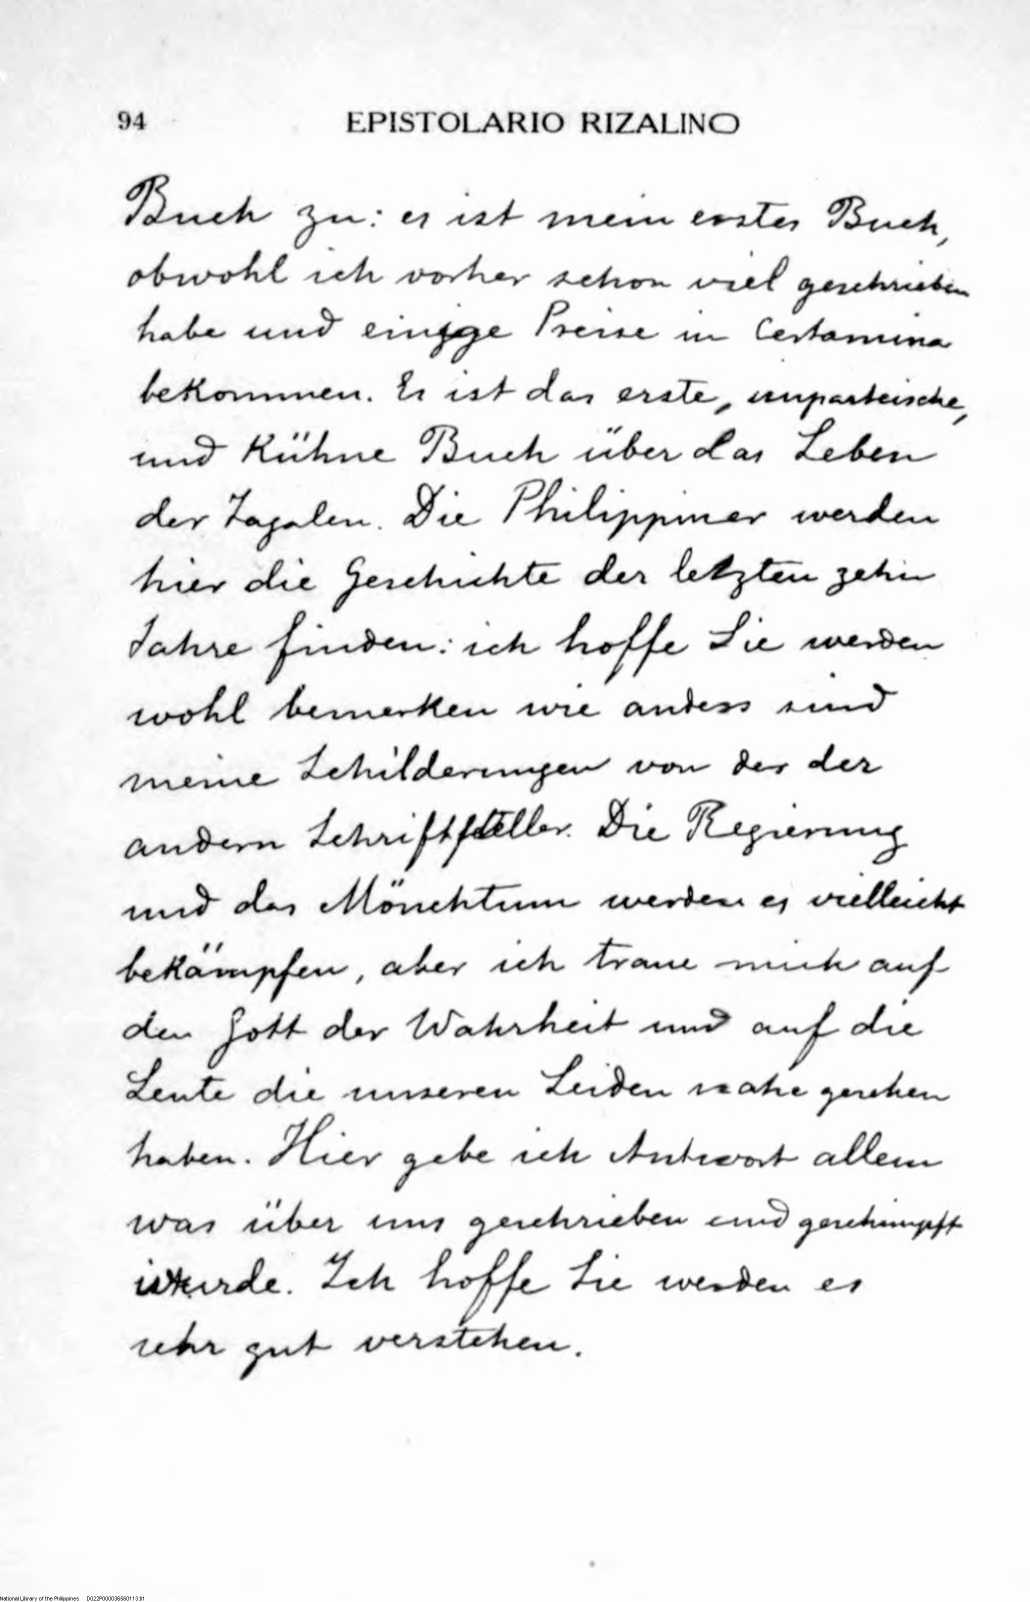 94 EPISTOLARIO RIZALINO
Buch zu: es ist mein erstes Buch,
obwohl ich vorher schon viel geschrieben
habe und einige Preise in Certamina
bekommen. Es ist das erste, unparteiische,
und kühne Buch über das Leben
der Tagalen. Die Philippiner werden
hier die Geschichte der letzten zehn
Jahre finden: ich hoffe Sie werden
wohl bemerken wie anders sind
meine Schilderungen von der der
andern Schriftsteller. Die Regierung
und das Mönchtum werden es vielleicht
bekämpfen, aber ich traue mich auf
den Gott der Wahrheit und auf die
Leute die unseren Leiden nahe gesehen
haben. Hier gebe ich Antwort allem
was über uns geschrieben und geschimpft
wurde. Ich hoffe Sie werden es
sehr gut verstehen.
National Library of the Philippines